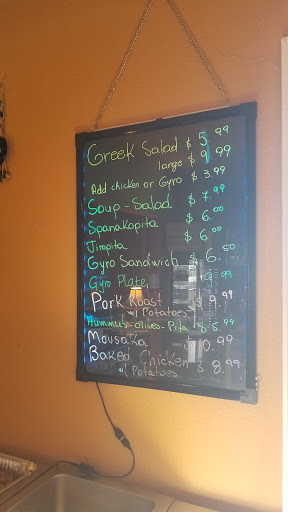 Greek Salad $ 5.99
large $ 9.99
Add chicken or Gyro $ 3.99
Soup - Salad $ 7.99
Spanakopita $ 6.00
Jiropita $ 6.00
Gyro Sandwich $ 6.50
Gyro Plate, .99
Pork Roast $ 9.99
w/ Potatoes
Hummus-olives-Pita $ 5.99
Mousaka $ 10.99
Baked Chicken
w/ Potatoes $ 8.99